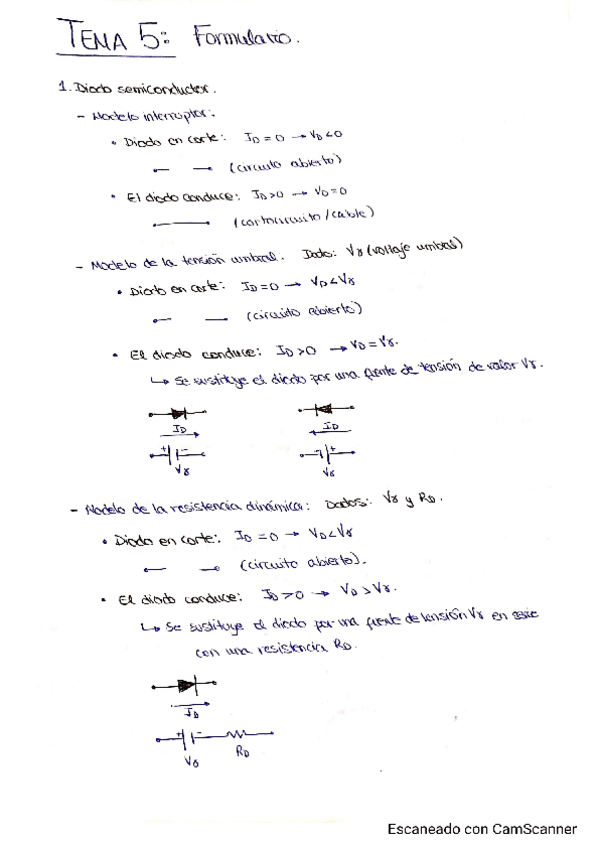 TEMA 5: Formulario.
1. Diodo semiconductor.
- Modelo interruptor:
• Diodo en corte: I_D = 0 → V_D < 0
(circuito abierto)
• El diodo conduce: I_D > 0 → V_D = 0
(cortocircuito / cable)
- Modelo de la tensión umbral. Dato: Vγ (voltaje umbral)
• Diodo en corte: I_D = 0 → V_D < Vγ
(circuito abierto)
• El diodo conduce: I_D > 0 → V_D = Vγ.
↳ Se sustituye el diodo por una fuente de tensión de valor Vγ.
I_D I_D
+ - - +
Vγ Vγ
- Modelo de la resistencia dinámica: Datos: Vγ y R_D.
• Diodo en corte: I_D = 0 → V_D < Vγ
(circuito abierto).
• El diodo conduce: I_D > 0 → V_D > Vγ.
↳ Se sustituye el diodo por una fuente de tensión Vγ en serie
con una resistencia R_D.
I_D
+ -
Vγ R_D
Escaneado con CamScanner